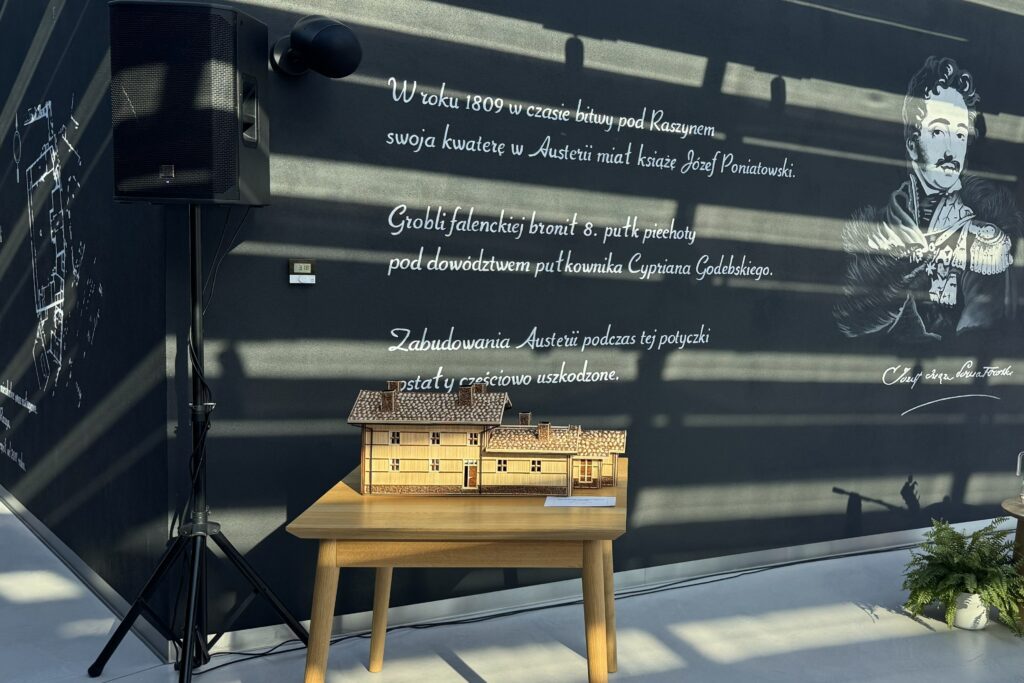 W roku 1809 w czasie bitwy pod Raszynem
swoja kwaterę w Austerii miał książę Józef Poniatowski.
Grobli falenckiej bronił 8. pułk piechoty
pod dowództwem pułkownika Cypriana Godebskiego.
Zabudowania Austerii podczas tej potyczki
częściowo uszkodzone.